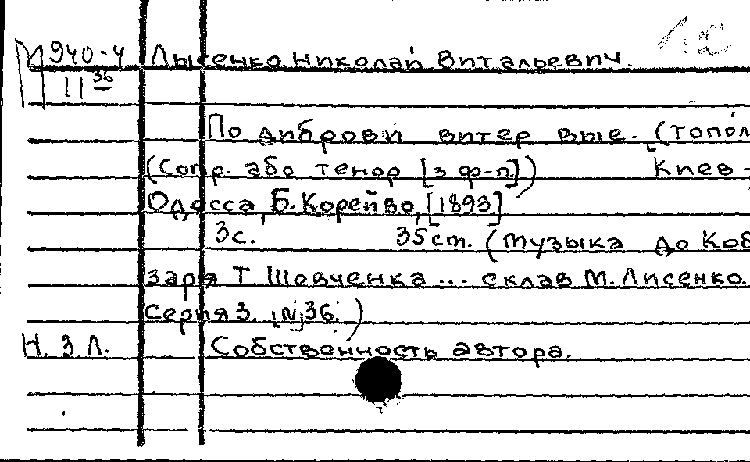 М 940-4 Лысенко Николай Витальевич.
II 36
По диброви витер вые. (Топол
(Сопр. або тенор [з ф-п]) Киев-
Одесса, Б. Корейво, [1893]
3с. 35 ст. (Музыка до Коб
заря Т Шевченка... склав М. Лисенко.
Серия 3. №36.)
Н. З. Л. Собственность автора.